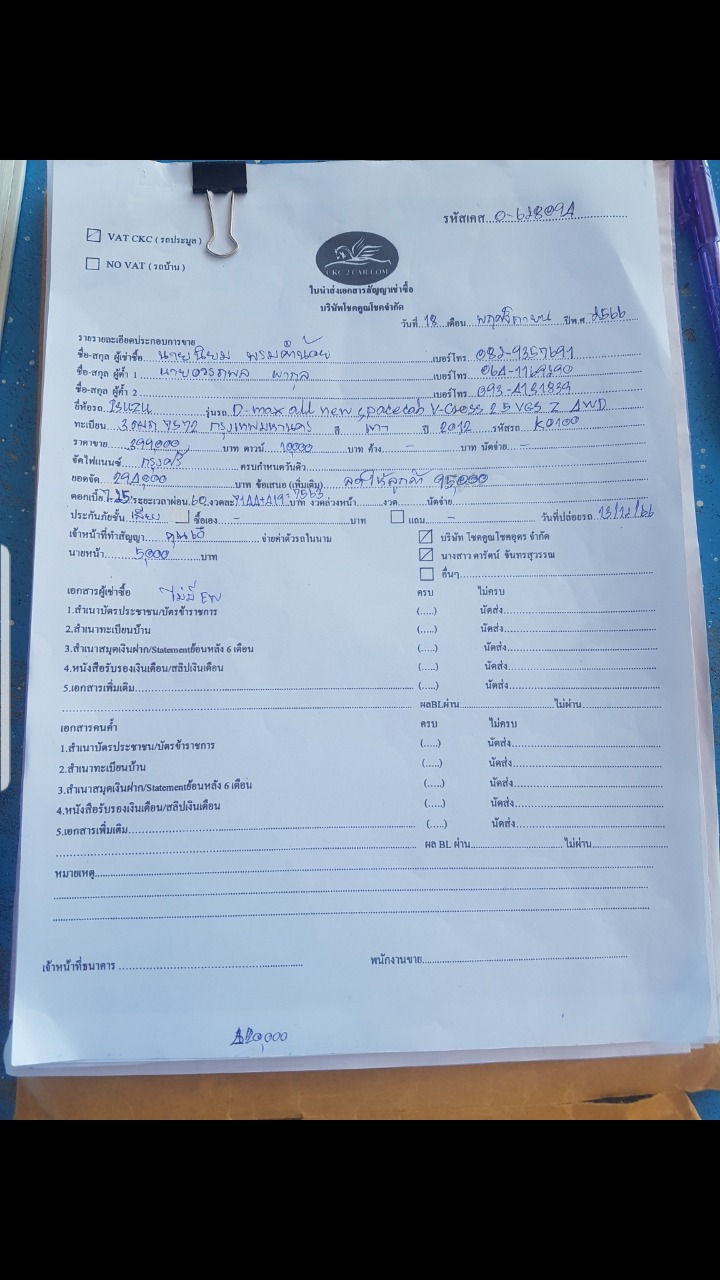 รหัสเคส 0-61809A
VAT CKC ( รถประมูล )
NO VAT ( รถบ้าน )
CKC 2 CAR.COM
ใบนำส่งเอกสารสัญญาเช่าซื้อ
บริษัทโชคคูณโชคจำกัด
วันที่ 18 เดือน พฤศจิกายน ปีพ.ศ. 2566
รายรายละเอียดประกอบการขาย
ชื่อ-สกุล ผู้เช่าซื้อ นายนิยม พรมคำน้อย เบอร์โทร 082-9357691
ชื่อ-สกุล ผู้ค้ำ 1 นาย เบอร์โทร 064-1169290
ชื่อ-สกุล ผู้ค้ำ 2 เบอร์โทร 093-4131839
ยี่ห้อรถ ISUZU รุ่นรถ D-max all new spacecab V-Cross 2.5 VGS Z 4WD
ทะเบียน 7572 กรุงเทพมหานคร สี เทา ปี 2012 รหัสรถ K0100
ราคาขาย 399,000 บาท ดาวน์ 10,000 บาท ค้าง - บาท นัดจ่าย -
จัดไฟแนนซ์ กรุงศรี ครบกำหนดวันคิว
ยอดจัด 294,000 บาท ข้อเสนอ (เพิ่มเติม) ลดให้ลูกค้า 95,000
ดอกเบี้ย 7.25 ระยะเวลาผ่อน 60 งวดละ 7144+419=7563 บาท งวดล่วงหน้า งวด นัดจ่าย
ประกันภัยชั้น ซื้อเอง - บาท แถม - วันที่ปล่อยรถ 13/12/66
เจ้าหน้าที่ทำสัญญา จ่ายค่าตัวรถในนาม บริษัท โชคคูณโชคอุดร จำกัด
นายหน้า 5,000 บาท นางสาว ดารัตน์ จันทรสุวรรณ
อื่นๆ
เอกสารผู้เช่าซื้อ ไม่มี EW ครบ ไม่ครบ
1.สำเนาบัตรประชาชน/บัตรข้าราชการ (.....) นัดส่ง
2.สำเนาทะเบียนบ้าน (.....) นัดส่ง
3.สำเนาสมุดเงินฝาก/Statementย้อนหลัง 6 เดือน (.....) นัดส่ง
4.หนังสือรับรองเงินเดือน/สลิปเงินเดือน (.....) นัดส่ง
5.เอกสารเพิ่มเติม (.....) นัดส่ง
ผลBLผ่าน ไม่ผ่าน
เอกสารคนค้ำ ครบ ไม่ครบ
1.สำเนาบัตรประชาชน/บัตรข้าราชการ (.....) นัดส่ง
2.สำเนาทะเบียนบ้าน (.....) นัดส่ง
3.สำเนาสมุดเงินฝาก/Statementย้อนหลัง 6 เดือน (.....) นัดส่ง
4.หนังสือรับรองเงินเดือน/สลิปเงินเดือน (.....) นัดส่ง
5.เอกสารเพิ่มเติม (.....) นัดส่ง
ผล BL ผ่าน ไม่ผ่าน
หมายเหตุ
เจ้าหน้าที่ธนาคาร พนักงานขาย